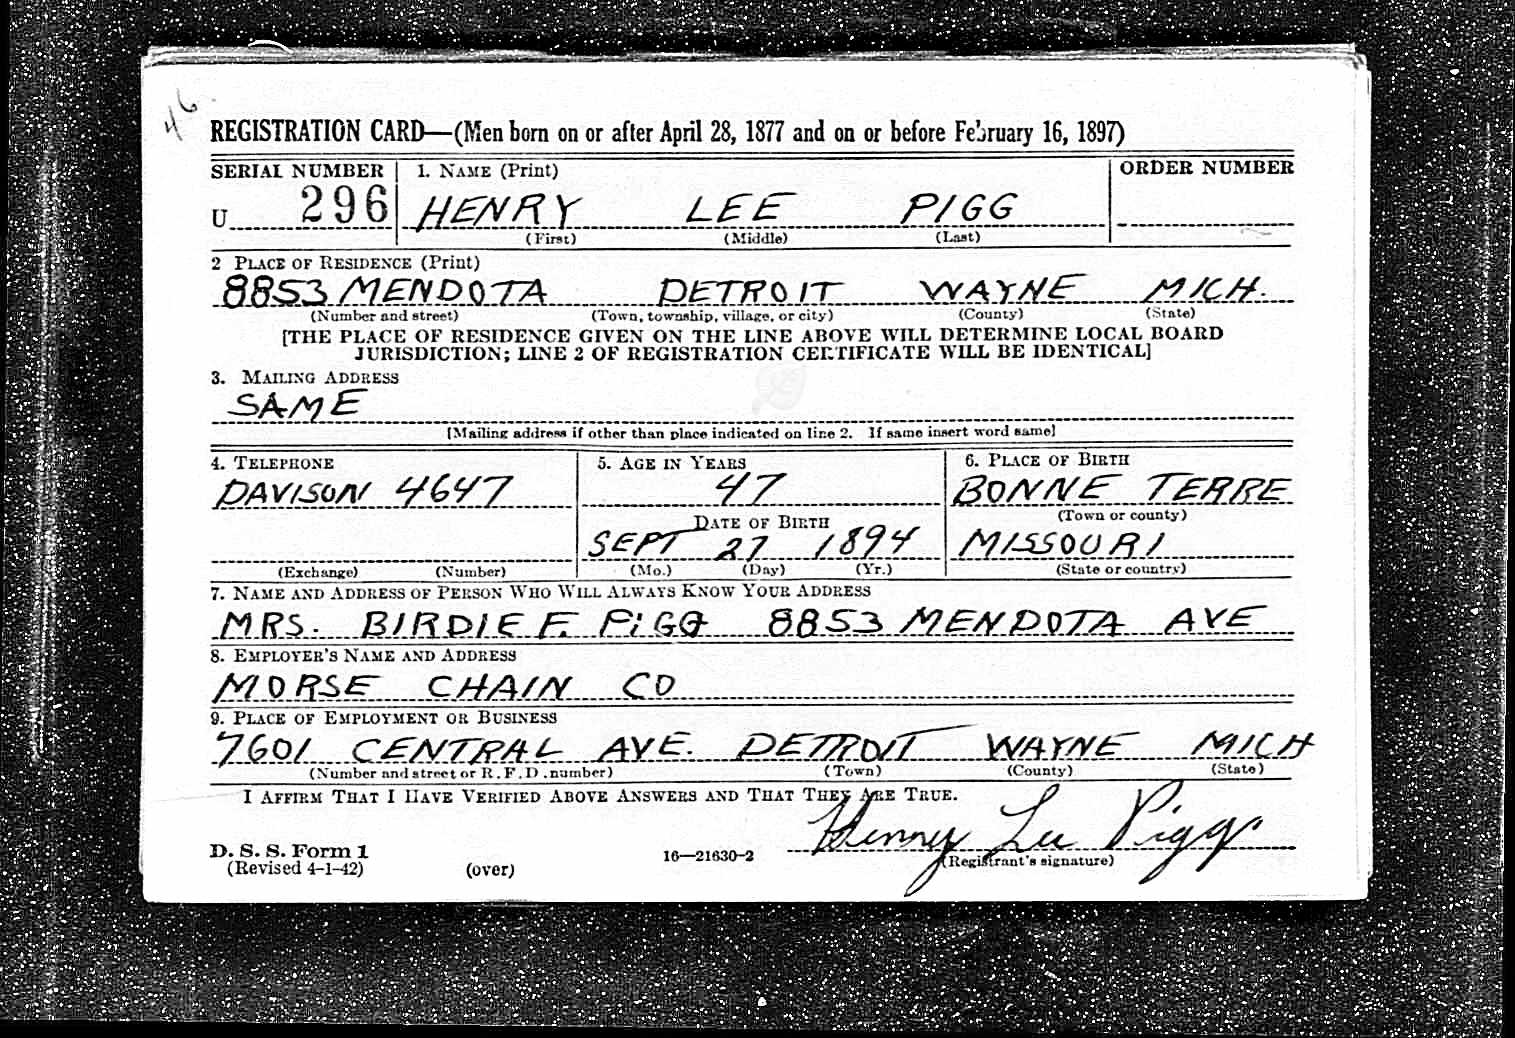 46
REGISTRATION CARD—(Men born on or after April 28, 1877 and on or before February 16, 1897)
SERIAL NUMBER 1. NAME (Print) ORDER NUMBER
U 296 HENRY LEE PIGG
(First) (Middle) (Last)
2 PLACE OF RESIDENCE (Print)
8853 MENDOTA DETROIT WAYNE MICH.
(Number and street) (Town, township, village, or city) (County) (State)
[THE PLACE OF RESIDENCE GIVEN ON THE LINE ABOVE WILL DETERMINE LOCAL BOARD
JURISDICTION; LINE 2 OF REGISTRATION CERTIFICATE WILL BE IDENTICAL]
3. MAILING ADDRESS
SAME
[Mailing address if other than place indicated on line 2. If same insert word same]
4. TELEPHONE 5. AGE IN YEARS 6. PLACE OF BIRTH
DAVISON 4647 47 BONNE TERRE
DATE OF BIRTH (Town or county)
SEPT 27 1894 MISSOURI
(Exchange) (Number) (Mo.) (Day) (Yr.) (State or country)
7. NAME AND ADDRESS OF PERSON WHO WILL ALWAYS KNOW YOUR ADDRESS
MRS. BIRDIE F. PIGG 8853 MENDOTA AVE
8. EMPLOYER'S NAME AND ADDRESS
MORSE CHAIN CO
9. PLACE OF EMPLOYMENT OR BUSINESS
7601 CENTRAL AVE. DETROIT WAYNE MICH
(Number and street or R. F. D. number) (Town) (County) (State)
I AFFIRM THAT I HAVE VERIFIED ABOVE ANSWERS AND THAT THEY ARE TRUE.
Henry Lee Pigg
D. S. S. Form 1 16—21630-2 (Registrant's signature)
(Revised 4-1-42) (over)